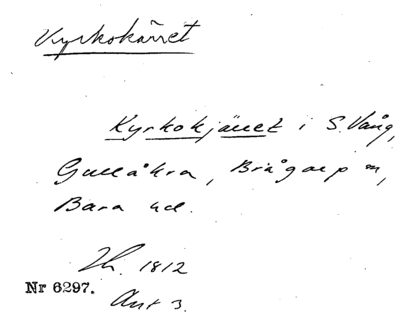 Kyrkokärret
Kyrkokjäret i S. Vång,
Gullåkra, Brågarp m,
Bara hd.
1812
Nr 6297.
Ant 3.